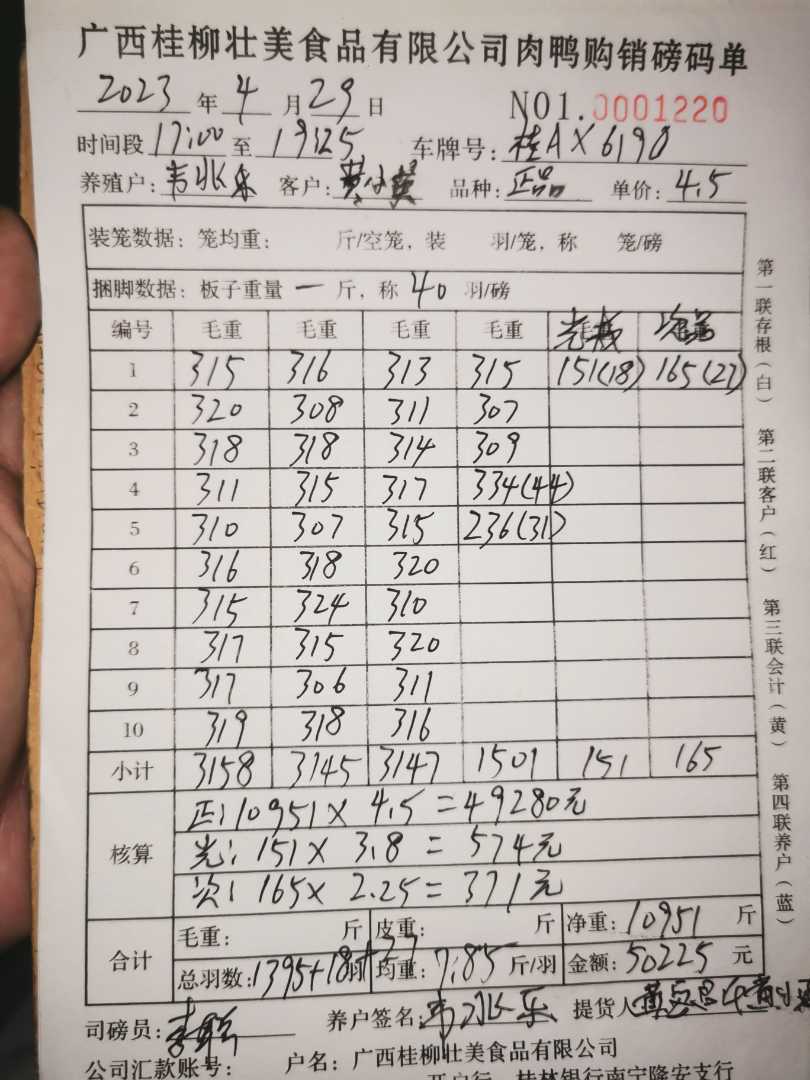 广西桂柳壮美食品有限公司肉鸭购销磅码单
2023 年 4 月 29 日 NO1.0001220
时间段 17:00 至 19:25 车牌号: 桂AX6190
养殖户: 韦兆乐 客户: 黄小黄 品种: 正品 单价: 4.5
装笼数据: 笼均重: 斤/空笼, 装 羽/笼, 称 笼/磅
捆脚数据: 板子重量 一 斤, 称 40 羽/磅
编号 毛重 毛重 毛重 毛重
1 315 316 313 315 151(18) 165(27)
2 320 308 311 307
3 318 318 314 309
4 311 315 317 334(44)
5 310 307 315 236(31)
6 316 318 320
7 315 324 310
8 317 315 320
9 317 306 311
10 319 318 316
小计 3158 3145 3147 1501 151 165
核算
正: 10951 X 4.5 = 49280元
光: 151 X 3.8 = 574元
次: 165 X 2.25 = 371元
合计
毛重: 斤 皮重: 斤 净重: 10951 斤
总羽数: 1395+18+27 羽 均重: 7.85 斤/羽 金额: 50225 元
司磅员: 养户签名: 提货人
公司汇款账号: 户名: 广西桂柳壮美食品有限公司
开户行 桂林银行南宁隆安支行
第一联存根(白)
第二联客户(红)
第三联会计(黄)
第四联养户(蓝)